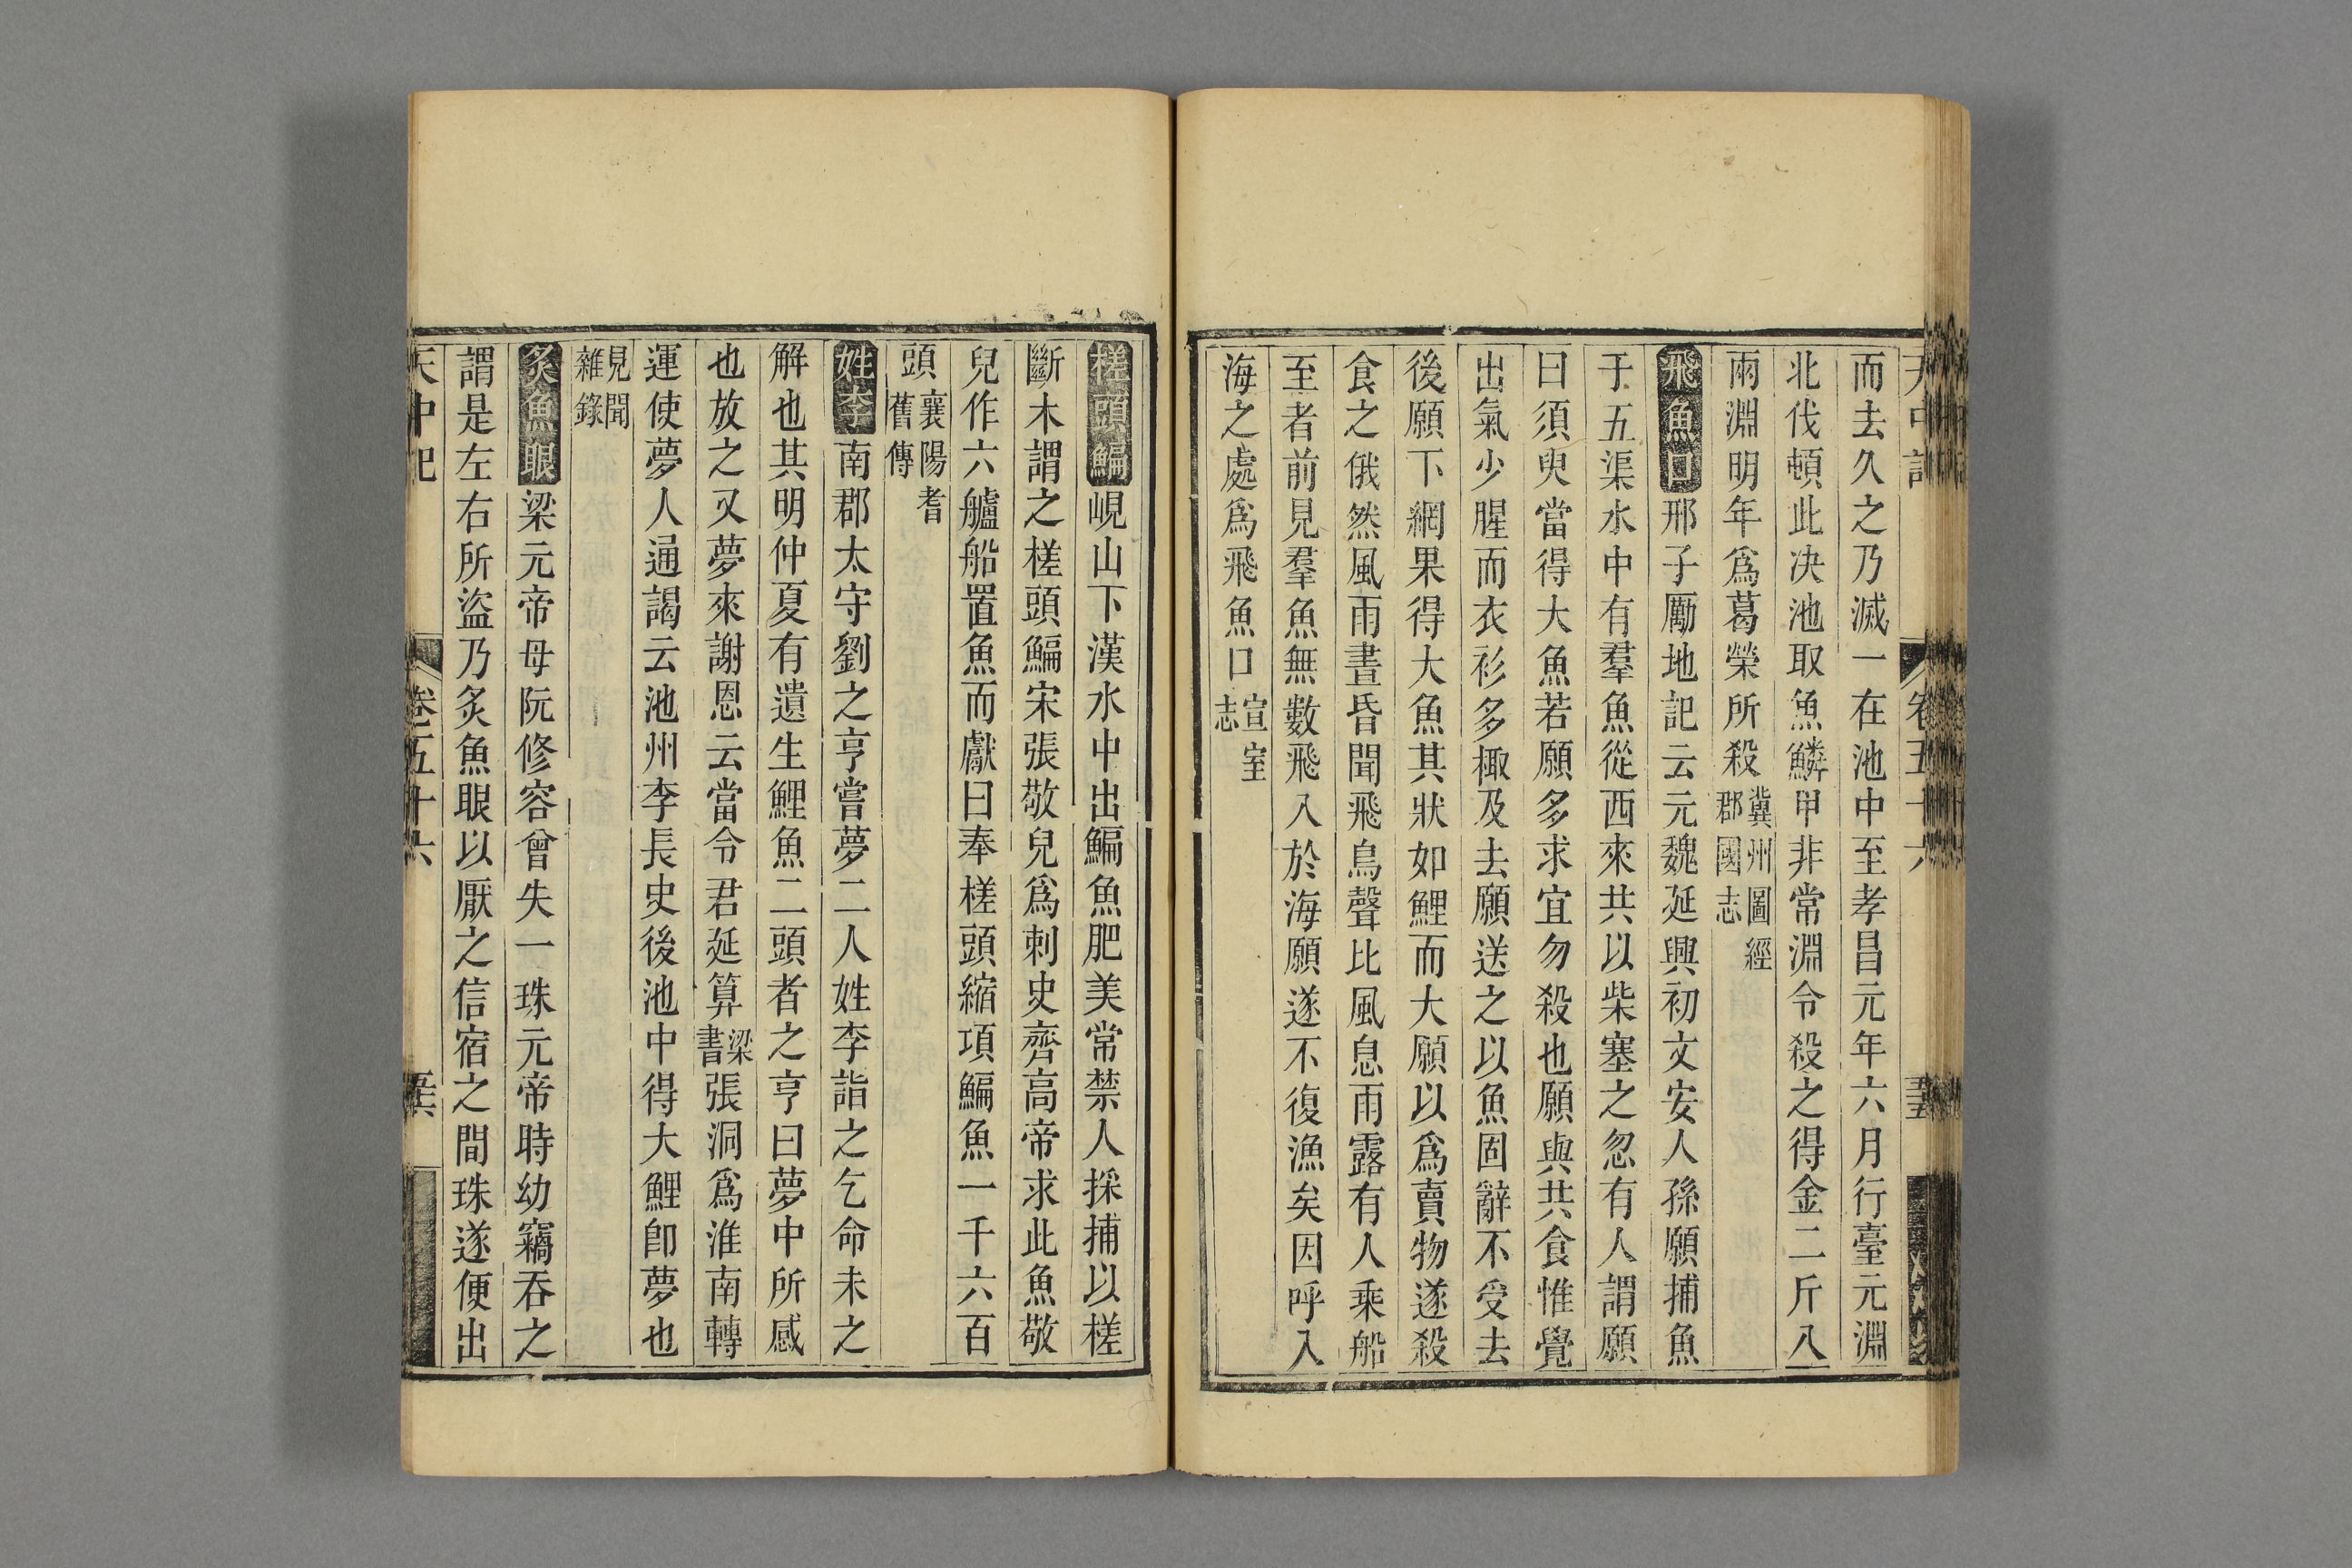 天中記
卷五十六
而去久之乃滅一在池中至孝昌元年六月行臺元淵
北伐頓此决池取魚鱗甲非常淵令殺之得金二斤八
兩淵明年爲葛榮所殺冀州圖經郡國志
飛魚口邢子勵地記云元魏延興初文安人孫願捕魚
于五渠水中有羣魚從西來共以柴塞之忽有人謂願
曰須臾當得大魚若願多求宜勿殺也願與共食惟覺
出氣少腥而衣衫多橄及去願送之以魚固辭不受去
後願下網果得大魚其狀如鯉而大願以爲賣物遂殺
食之俄然風雨晝昏聞飛鳥聲比風息雨露有人乘船
至者前見羣魚無數飛入於海願遂不復漁矣因呼入
海之處爲飛魚口宣室志
槎頭鯿峴山下漢水中出鯿魚肥美常禁人採捕以槎
斷木謂之槎頭鯿宋張敬兒爲刺史齊高帝求此魚敬
兒作六艫船置魚而獻曰奉槎頭縮項鯿魚一千六百
頭襄陽耆舊傳
姓李南郡太守劉之亨嘗夢二人姓李詣之乞命未之
解也其明仲夏有遺生鯉魚二頭者之亨曰夢中所感
也放之又夢來謝恩云當令君延算梁書張洞爲淮南轉
運使夢人通謁云池州李長史後池中得大鯉卽夢也
見聞雜錄
炙魚眼梁元帝母阮修容曾失一珠元帝時幼竊吞之
謂是左右所盜乃炙魚眼以厭之信宿之間珠遂便出
天中記
卷五十六